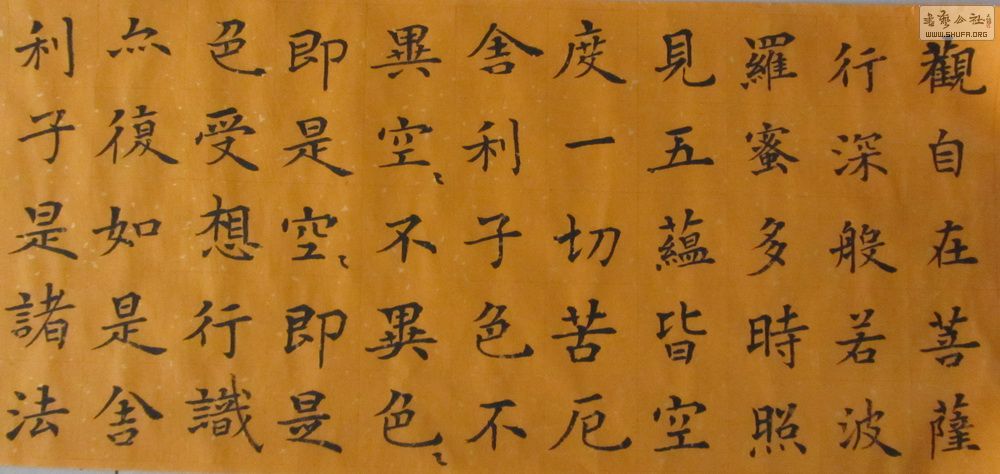 觀自在菩薩
行深般若波
羅蜜多時照
見五蘊皆空
度一切苦厄
舍利子色不
異空〻不異色〻
即是空〻即是
色受想行識
亦復如是舍
利子是諸法
书艺公社
WWW.SHUFA.ORG